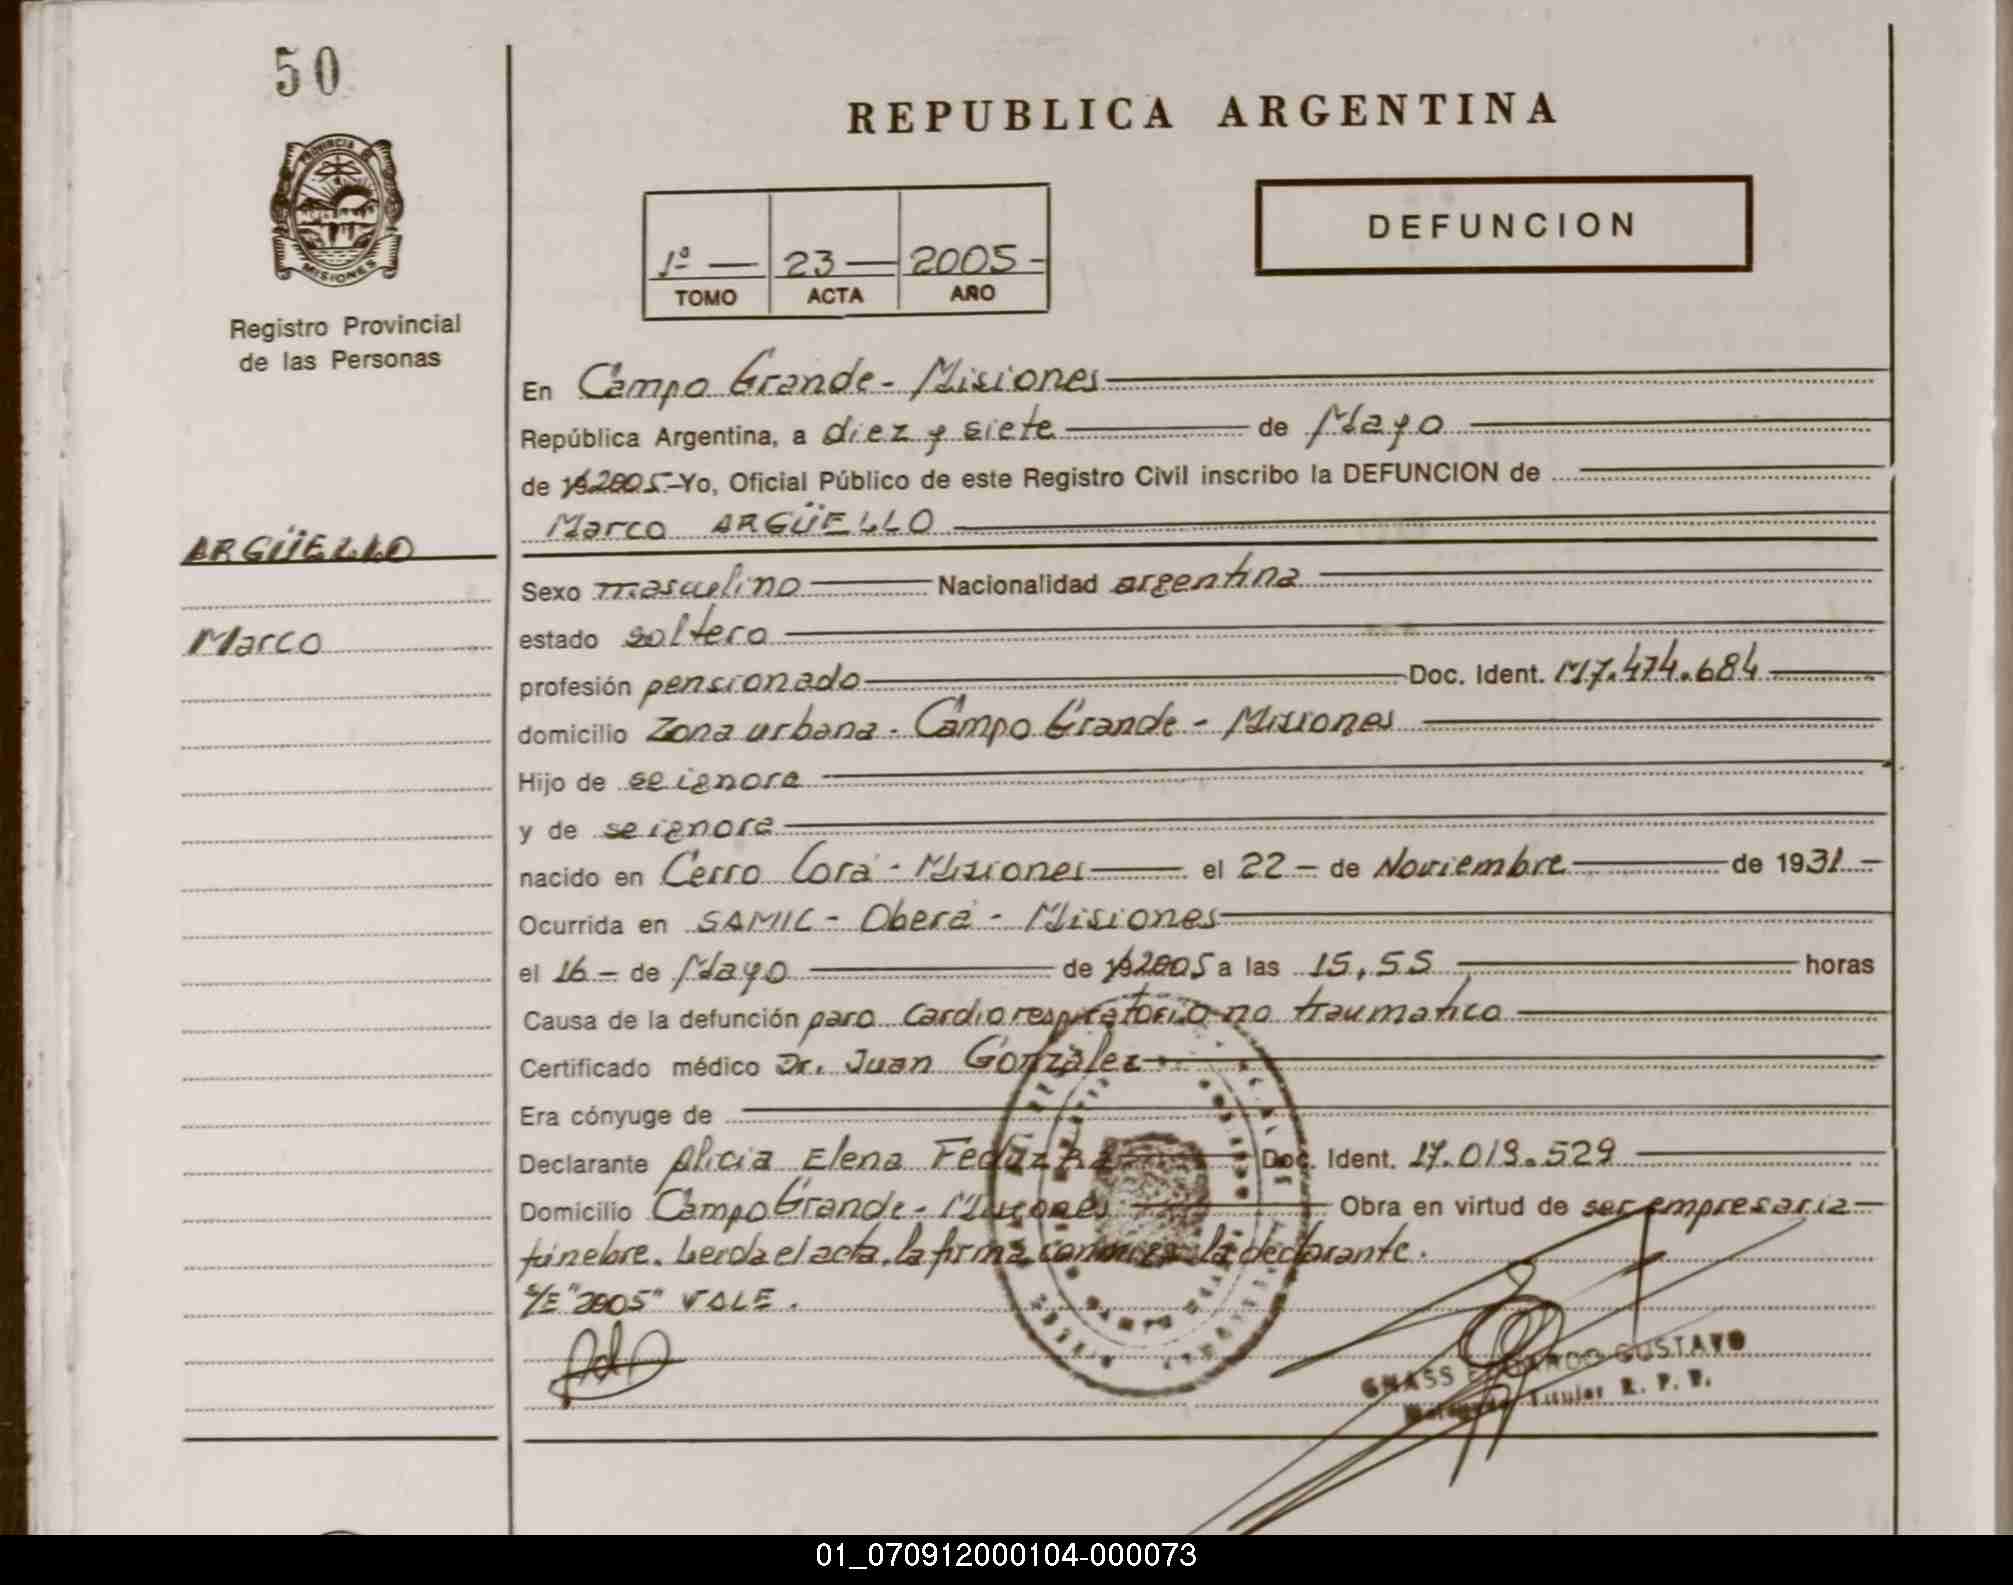 50
PROVINCIA DE
MISIONES
Registro Provincial
de las Personas
REPUBLICA ARGENTINA
DEFUNCION
1º — 23 — 2005 -
TOMO ACTA AÑO
En Campo Grande - Misiones
República Argentina, a diez y siete de Mayo
de 19 2005 - Yo, Oficial Público de este Registro Civil inscribo la DEFUNCION de
Marco ARGÜELLO
ARGÜELLO
Marco
Sexo masculino Nacionalidad argentina
estado soltero
profesión pensionado Doc. Ident. M7.474.684
domicilio Zona urbana - Campo Grande - Misiones
Hijo de se ignora
y de se ignora
nacido en Cerro Corá - Misiones el 22 - de Noviembre de 1931 -
Ocurrida en SAMIC - Oberá - Misiones
el 16 - de Mayo de 19 2005 a las 15,55 horas
Causa de la defunción paro cardiorespiratorio no traumatico
Certificado médico Dr. Juan Gonzalez
Era cónyuge de
Declarante Alicia Elena Doc. Ident. 17.019.529
Domicilio Campo Grande - Misiones Obra en virtud de ser empresaria
fúnebre. Leida el acta, la firma conmigo la declarante.
S/E "2005" VALE.
GUSTAVO
Titular R. P. P.
01_070912000104-000073